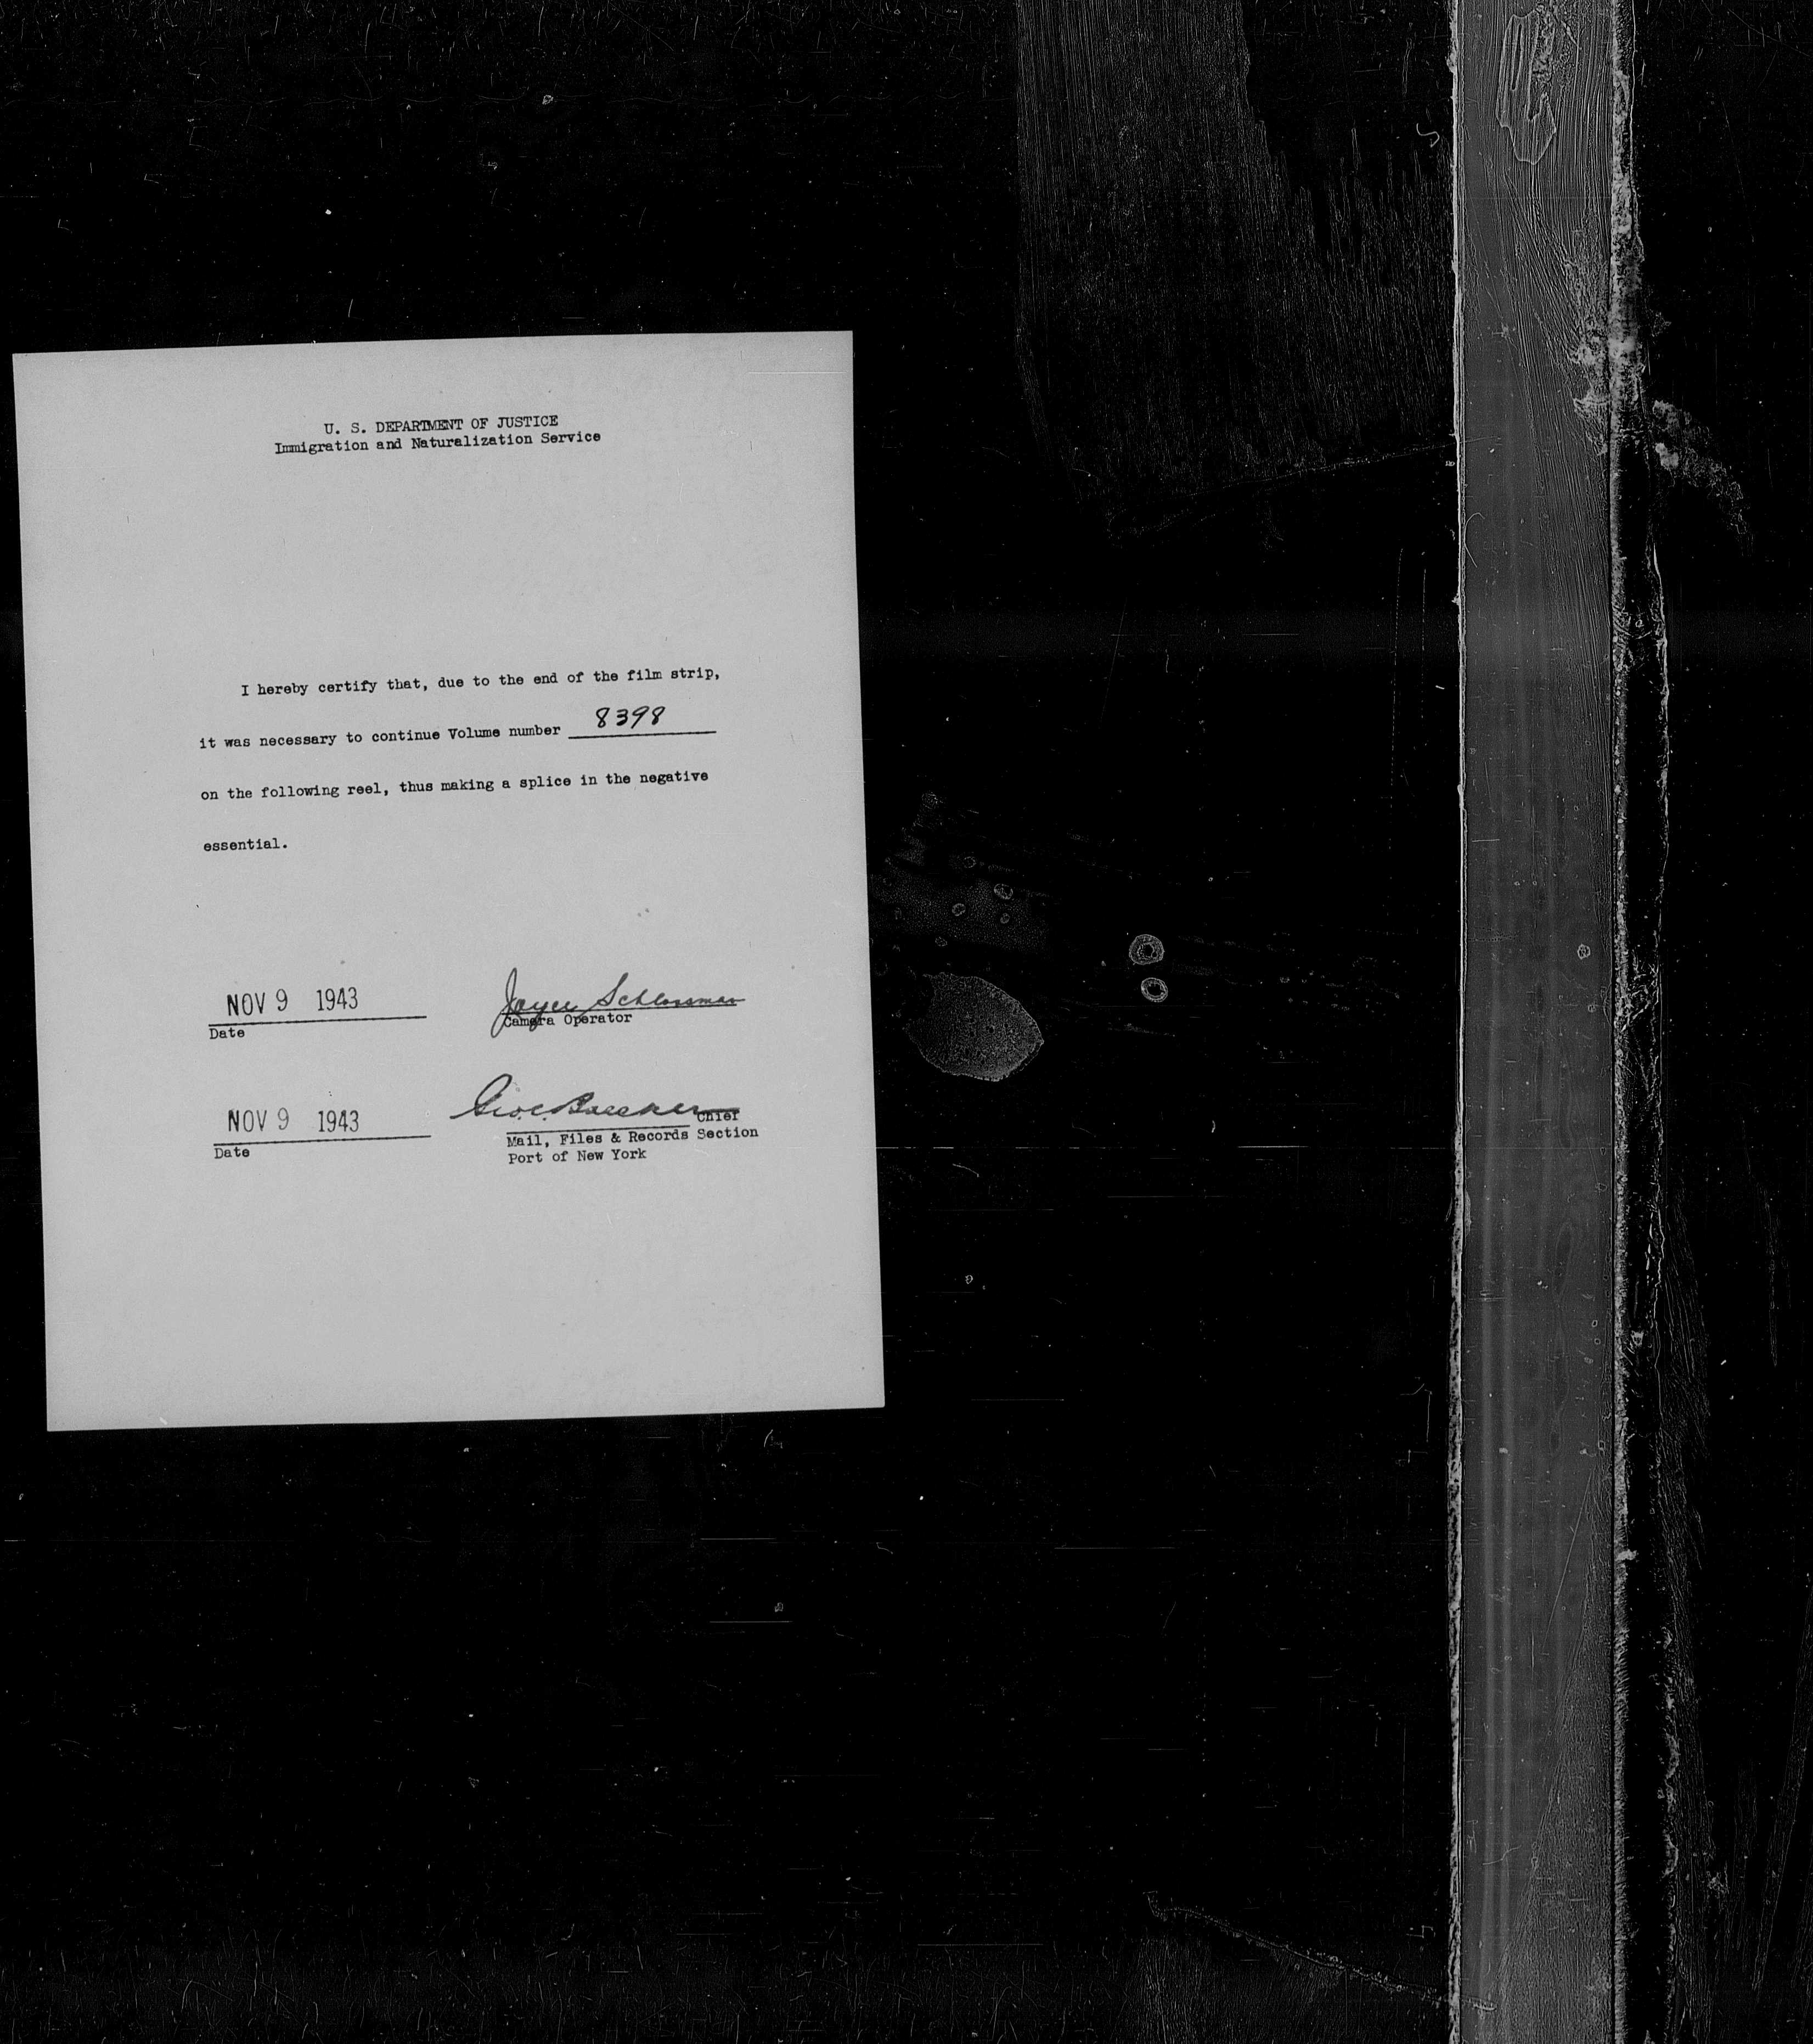 U. S. DEPARTMENT OF JUSTICE
Immigration and Naturalization Service
I hereby certify that, due to the end of the film strip,
it was necessary to continue Volume number 8398
on the following reel, thus making a splice in the negative
essential.
NOV 9 1943 Joyce Schlossman
Date Camera Operator
NOV 9 1943 Chief
Date Mail, Files & Records Section
Port of New York